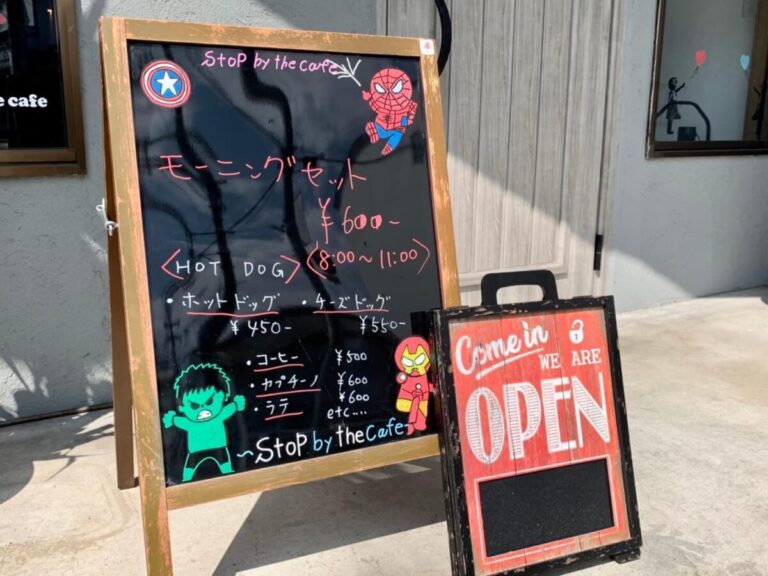 e cafe
Stop by the cafe
モーニングセット
¥600~
〈HOT DOG〉
〈8:00~11:00〉
・ホットドッグ
¥450-
・チーズドッグ
¥550-
・コーヒー ¥500
・カプチーノ ¥600
・ラテ ¥600
etc....
~Stop by the Cafe~
Come in
WE ARE
OPEN